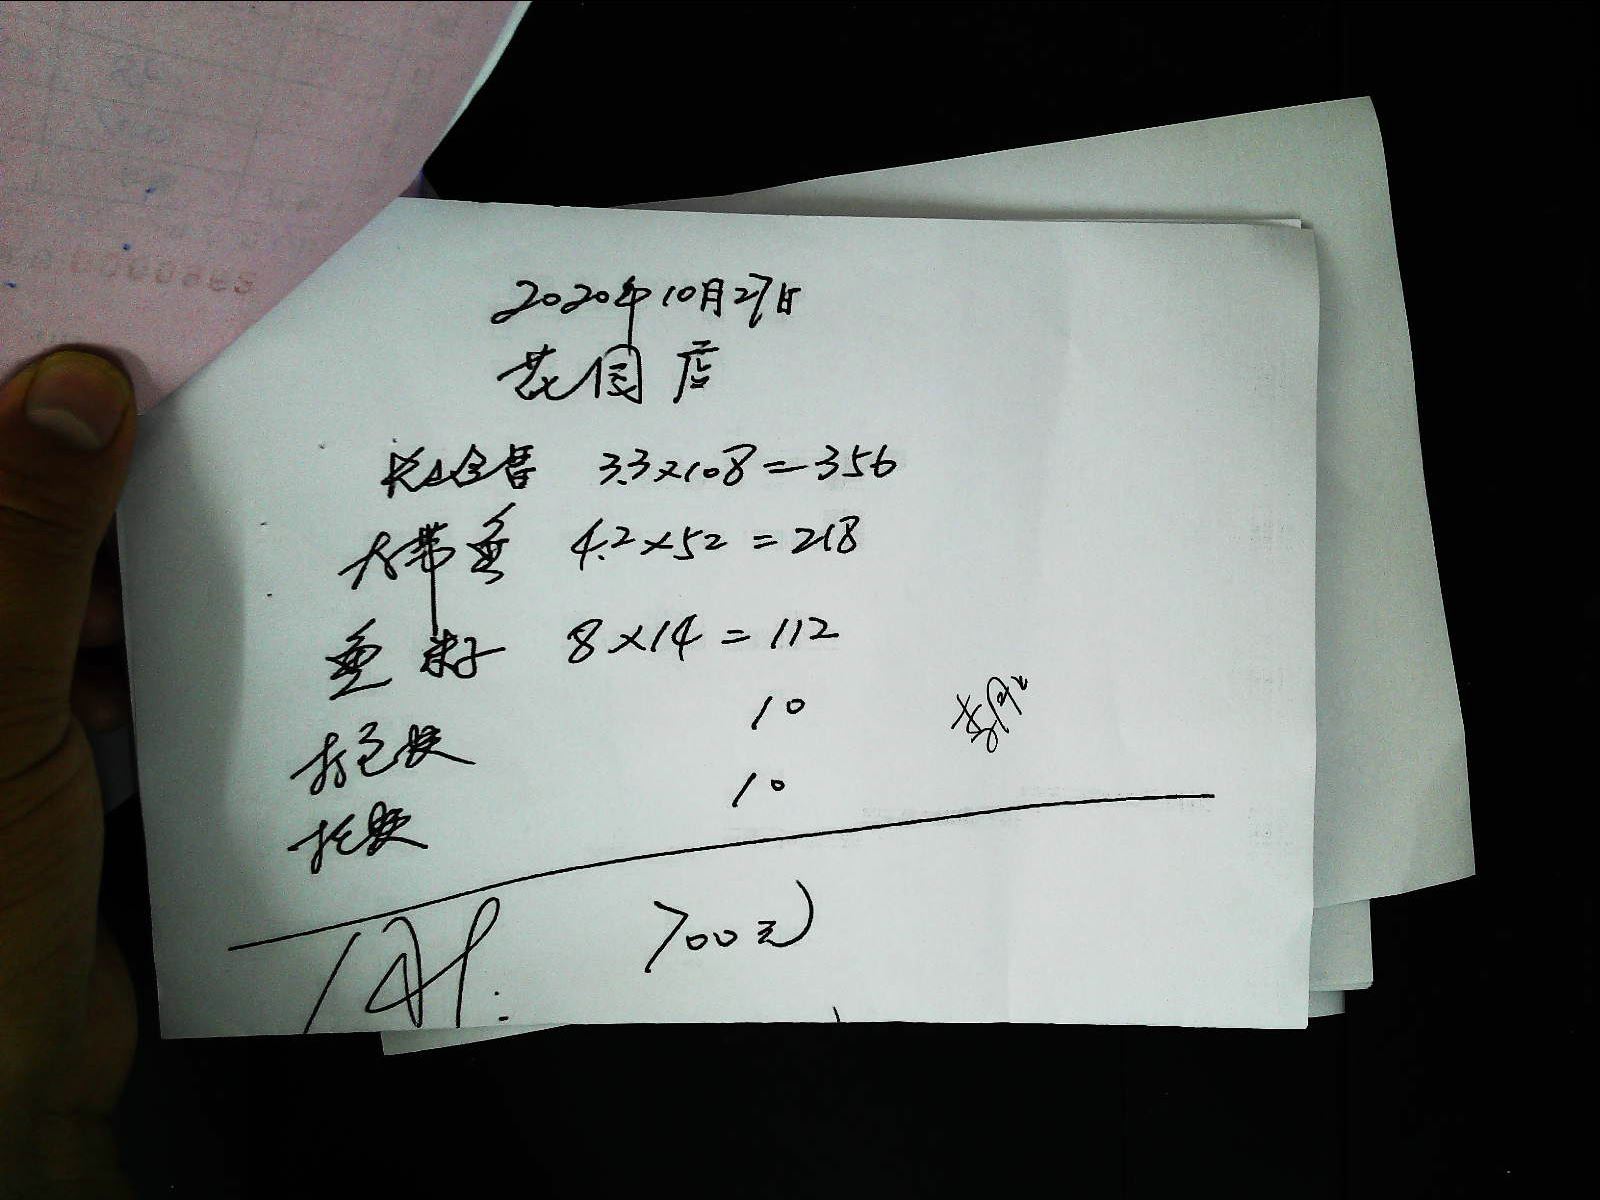 2020年10月27日
花园店
长山全昌 3.3×108=356
大带鱼 4.2×52=218
鱼籽 8×14=112
打包费 10
托费 10
700元